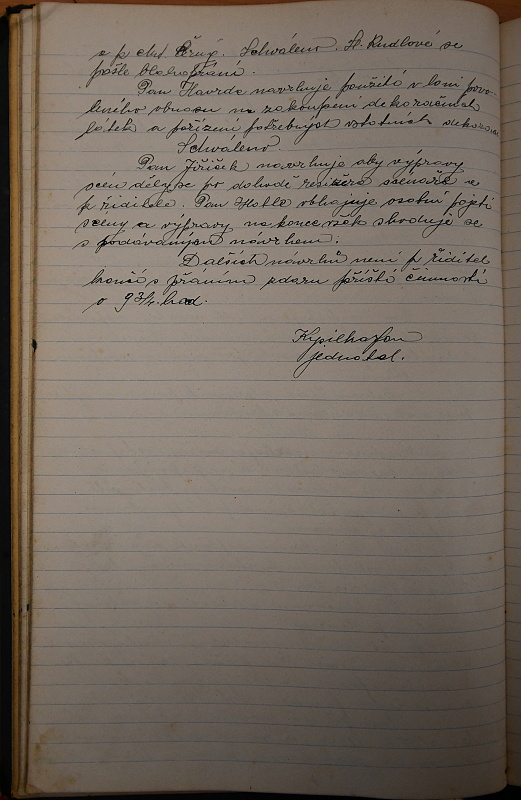 a p. chef Černý. Schváleno. Sl. Rudlové se
pošle blahopřání.
Pan Havrda navrhuje použití v loni povo-
leného obnosu na zakoupení dekoračních
látek a pořízení potřebných ostatních dekorací
Schváleno.
Pan Jiříček navrhuje aby výpravy
scén děly se po dohodě režiséra scénáře a
p řiditele. Pan Hablo obhajuje osobní pojetí
scény a výpravy na konec však shoduje se
s podávaným návrhem.
Dalších návrhů není p. řiditel
končí s přáním zdaru příští činnosti
o 9 3/4 hod.
jednatel.